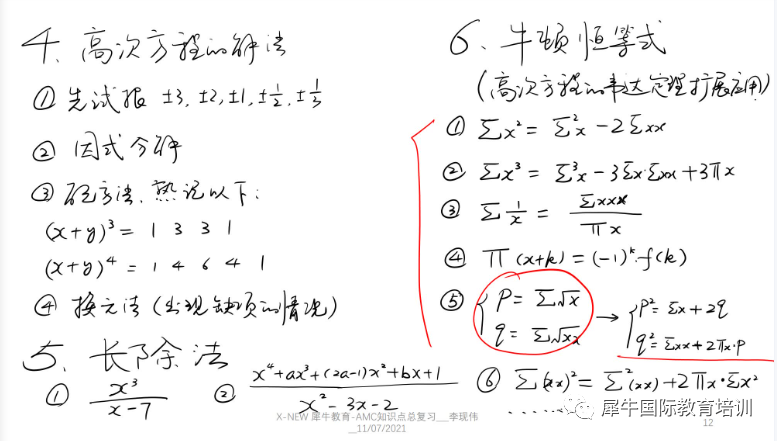 4、高次方程的解法
① 先试根 ±3, ±2, ±1, ±1/2, ±1/3
② 因式分解
③ 配方法、熟记以下:
(x+y)³ = 1 3 3 1
(x+y)⁴ = 1 4 6 4 1
④ 换元法 (出现缺项的情况)
5、长除法
① x³/(x-7)
② (x⁴+ax³+(2a-1)x²+bx+1)/(x²-3x-2)
6、牛顿恒等式
(高次方程的韦达定理扩展应用)
① Σx² = Σ²x - 2Σxx
② Σx³ = Σ³x - 3Σx·Σxx + 3πx
③ Σ1/x = Σxxx/πx
④ π(x+k) = (-1)ᵏ·f(k)
⑤ { p = Σ√x
q = Σ√xx
→ { p² = Σx + 2q
q² = Σxx + 2πx·p
⑥ Σ(xx)² = Σ²(xx) + 2πx·Σx²
……
犀牛国际教育培训
X-NEW 犀牛教育-AMC知识点总复习__李现伟
__11/07/2021
12